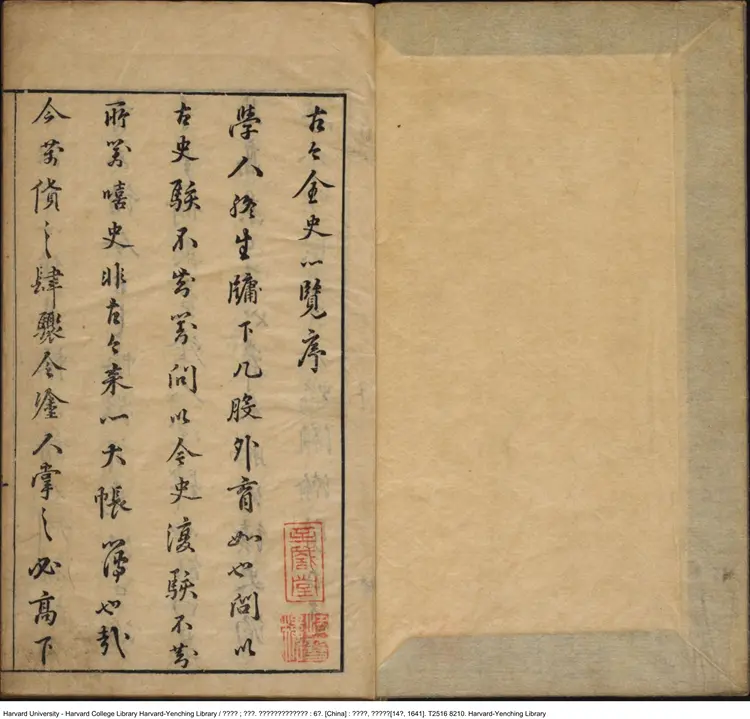 古今全史一覽序
學人終生牖下八股外盲如也問以
古史駭不對問以今史復駭不對
所答嘻史非古今來一大帳簿也哉
今夫貨之肆聚令塗人掌之必高下
Harvard University - Harvard College Library Harvard-Yenching Library / ???? ; ???. ????????????? : 6?. [China] : ????, ?????[14?, 1641]. T2516 8210. Harvard-Yenching Library